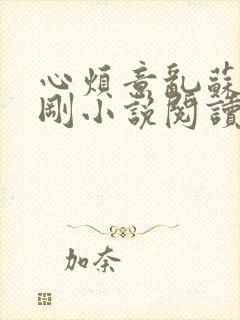 心煩意亂蘇
剛小說閱讀
加奈